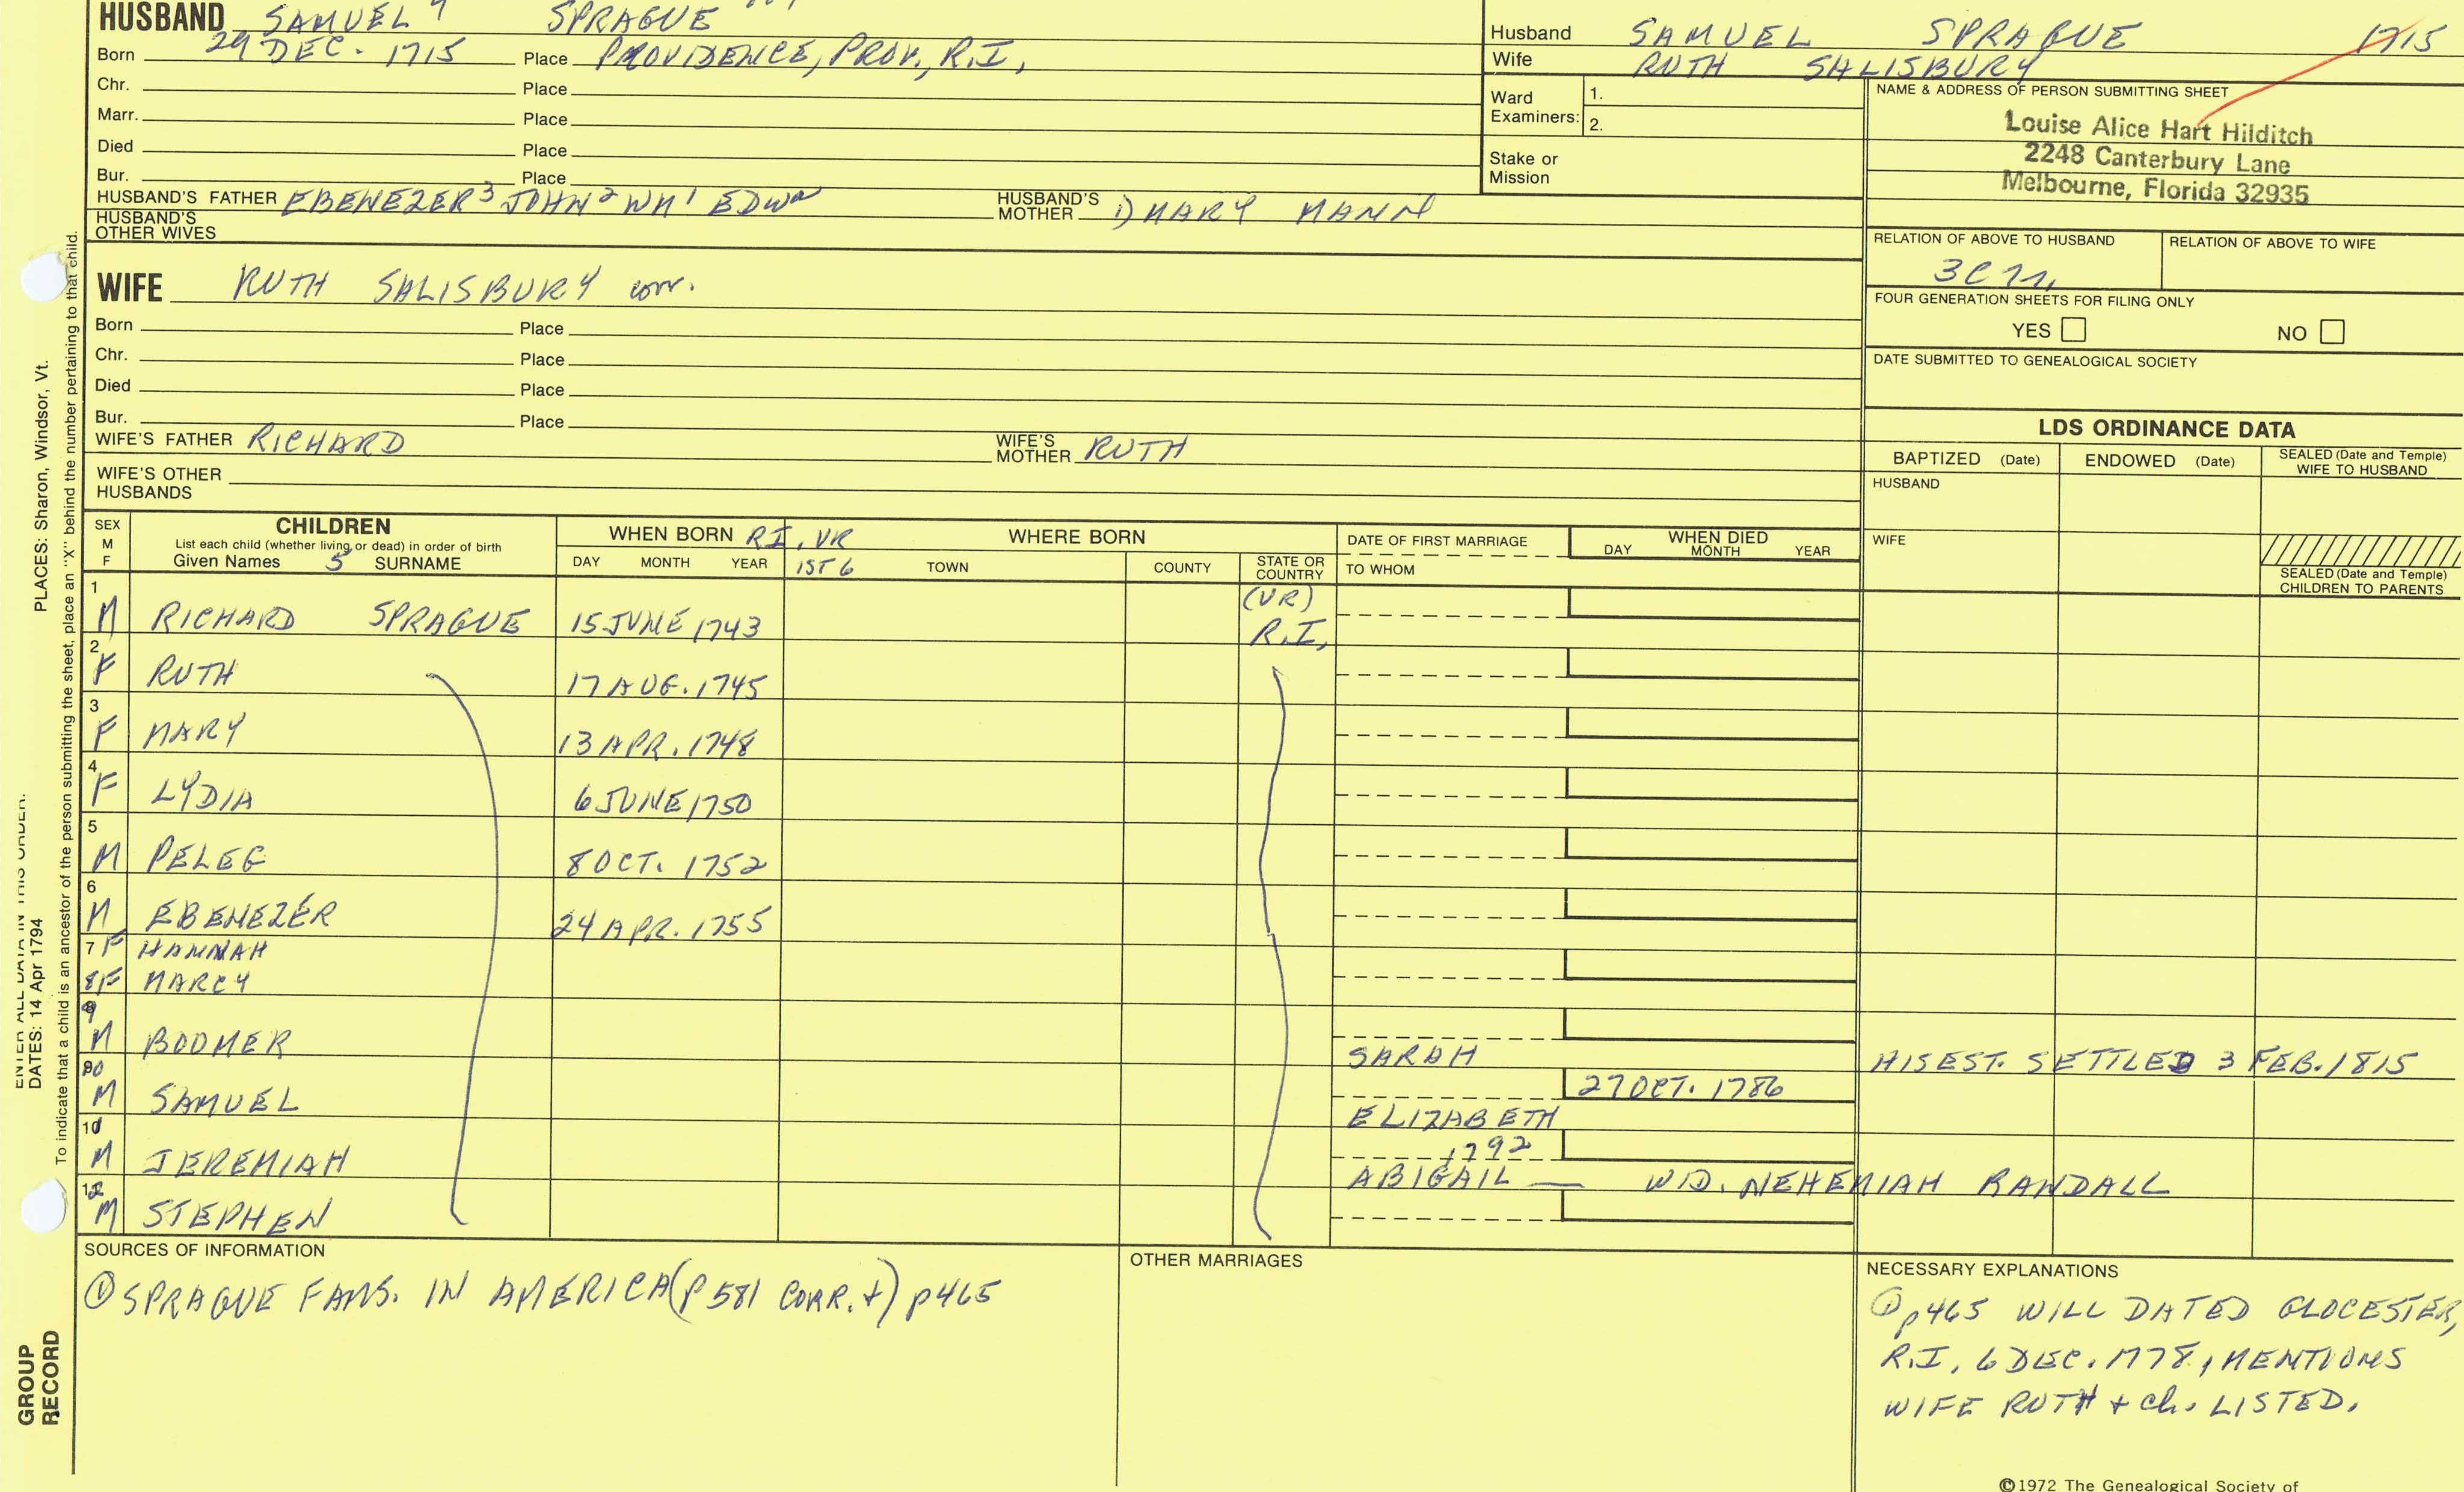 HUSBAND SAMUEL SPRAGUE
Born 29 DEC. 1715 Place PROVIDENCE, PROV., R.I,
Chr. Place
Marr. Place
Died Place
Bur. Place
HUSBAND'S FATHER EBENEZER³ JOHN² WM¹ EDWᵈ HUSBAND'S MOTHER 1) MARY MANN
HUSBAND'S OTHER WIVES
WIFE RUTH SALISBURY corr.
Born Place
Chr. Place
Died Place
Bur. Place
WIFE'S FATHER RICHARD WIFE'S MOTHER RUTH
WIFE'S OTHER HUSBANDS
Husband SAMUEL SPRAGUE 1715
Wife RUTH SALISBURY
Ward Examiners: 1.
2.
Stake or Mission
NAME & ADDRESS OF PERSON SUBMITTING SHEET
Louise Alice Hart Hilditch
2248 Canterbury Lane
Melbourne, Florida 32935
RELATION OF ABOVE TO HUSBAND RELATION OF ABOVE TO WIFE
FOUR GENERATION SHEETS FOR FILING ONLY
YES NO
DATE SUBMITTED TO GENEALOGICAL SOCIETY
LDS ORDINANCE DATA
BAPTIZED (Date) ENDOWED (Date) SEALED (Date and Temple) WIFE TO HUSBAND
HUSBAND
WIFE
SEALED (Date and Temple) CHILDREN TO PARENTS
SEX M F
CHILDREN
List each child (whether living or dead) in order of birth
Given Names 5 SURNAME
WHEN BORN R.I. VR
DAY MONTH YEAR 1ST 6
WHERE BORN
TOWN COUNTY STATE OR COUNTRY
DATE OF FIRST MARRIAGE
TO WHOM
WHEN DIED
DAY MONTH YEAR
1 M RICHARD SPRAGUE 15 JUNE 1743 (VR) R.I,
2 F RUTH 17 AUG. 1745
3 F MARY 13 APR. 1748
4 F LYDIA 6 JUNE 1750
5 M PELEG 8 OCT. 1752
6 M EBENEZER 24 APR. 1755
7 F HANNAH
8 F MARCY
9 M BOOMER SARAH HIS EST. SETTLED 3 FEB. 1815
10 M SAMUEL 27 OCT. 1786 ELIZABETH
11 M JEREMIAH 1792 ABIGAIL — WD. NEHEMIAH RANDALL
12 M STEPHEN
SOURCES OF INFORMATION
① SPRAGUE FAMS. IN AMERICA (P 581 CORR. +) p465
OTHER MARRIAGES
NECESSARY EXPLANATIONS
① p465 WILL DATED GLOCESTER,
R.I, 6 DEC. 1778, MENTIONS
WIFE RUTH + ch. LISTED.
©1972 The Genealogical Society of
PLACES: Sharon, Windsor, Vt.
DATES: 14 Apr 1794
To indicate that a child is an ancestor of the person submitting the sheet, place an "X" behind the number pertaining to that child.
GROUP RECORD